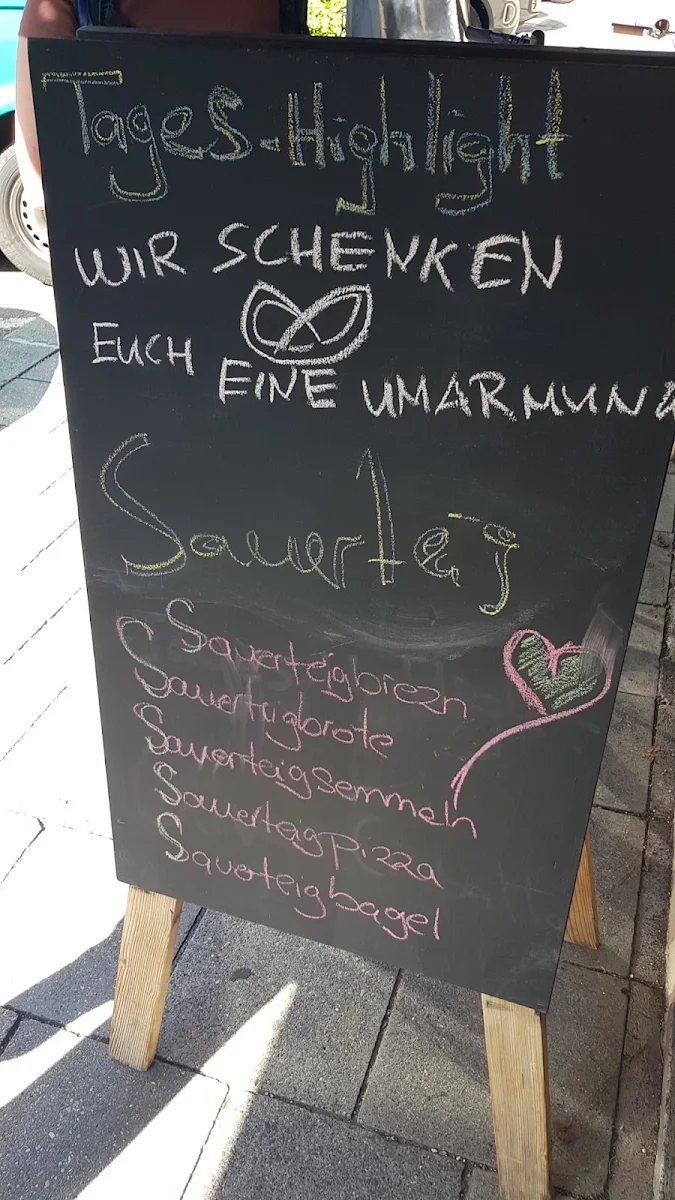 Tages-Highlight
WIR SCHENKEN
EUCH EINE UMARMUNG
Sauerteig
Sauerteigbrezn
Sauerteigbrote
Sauerteigsemmeln
Sauerteigpizza
Sauerteigbagel